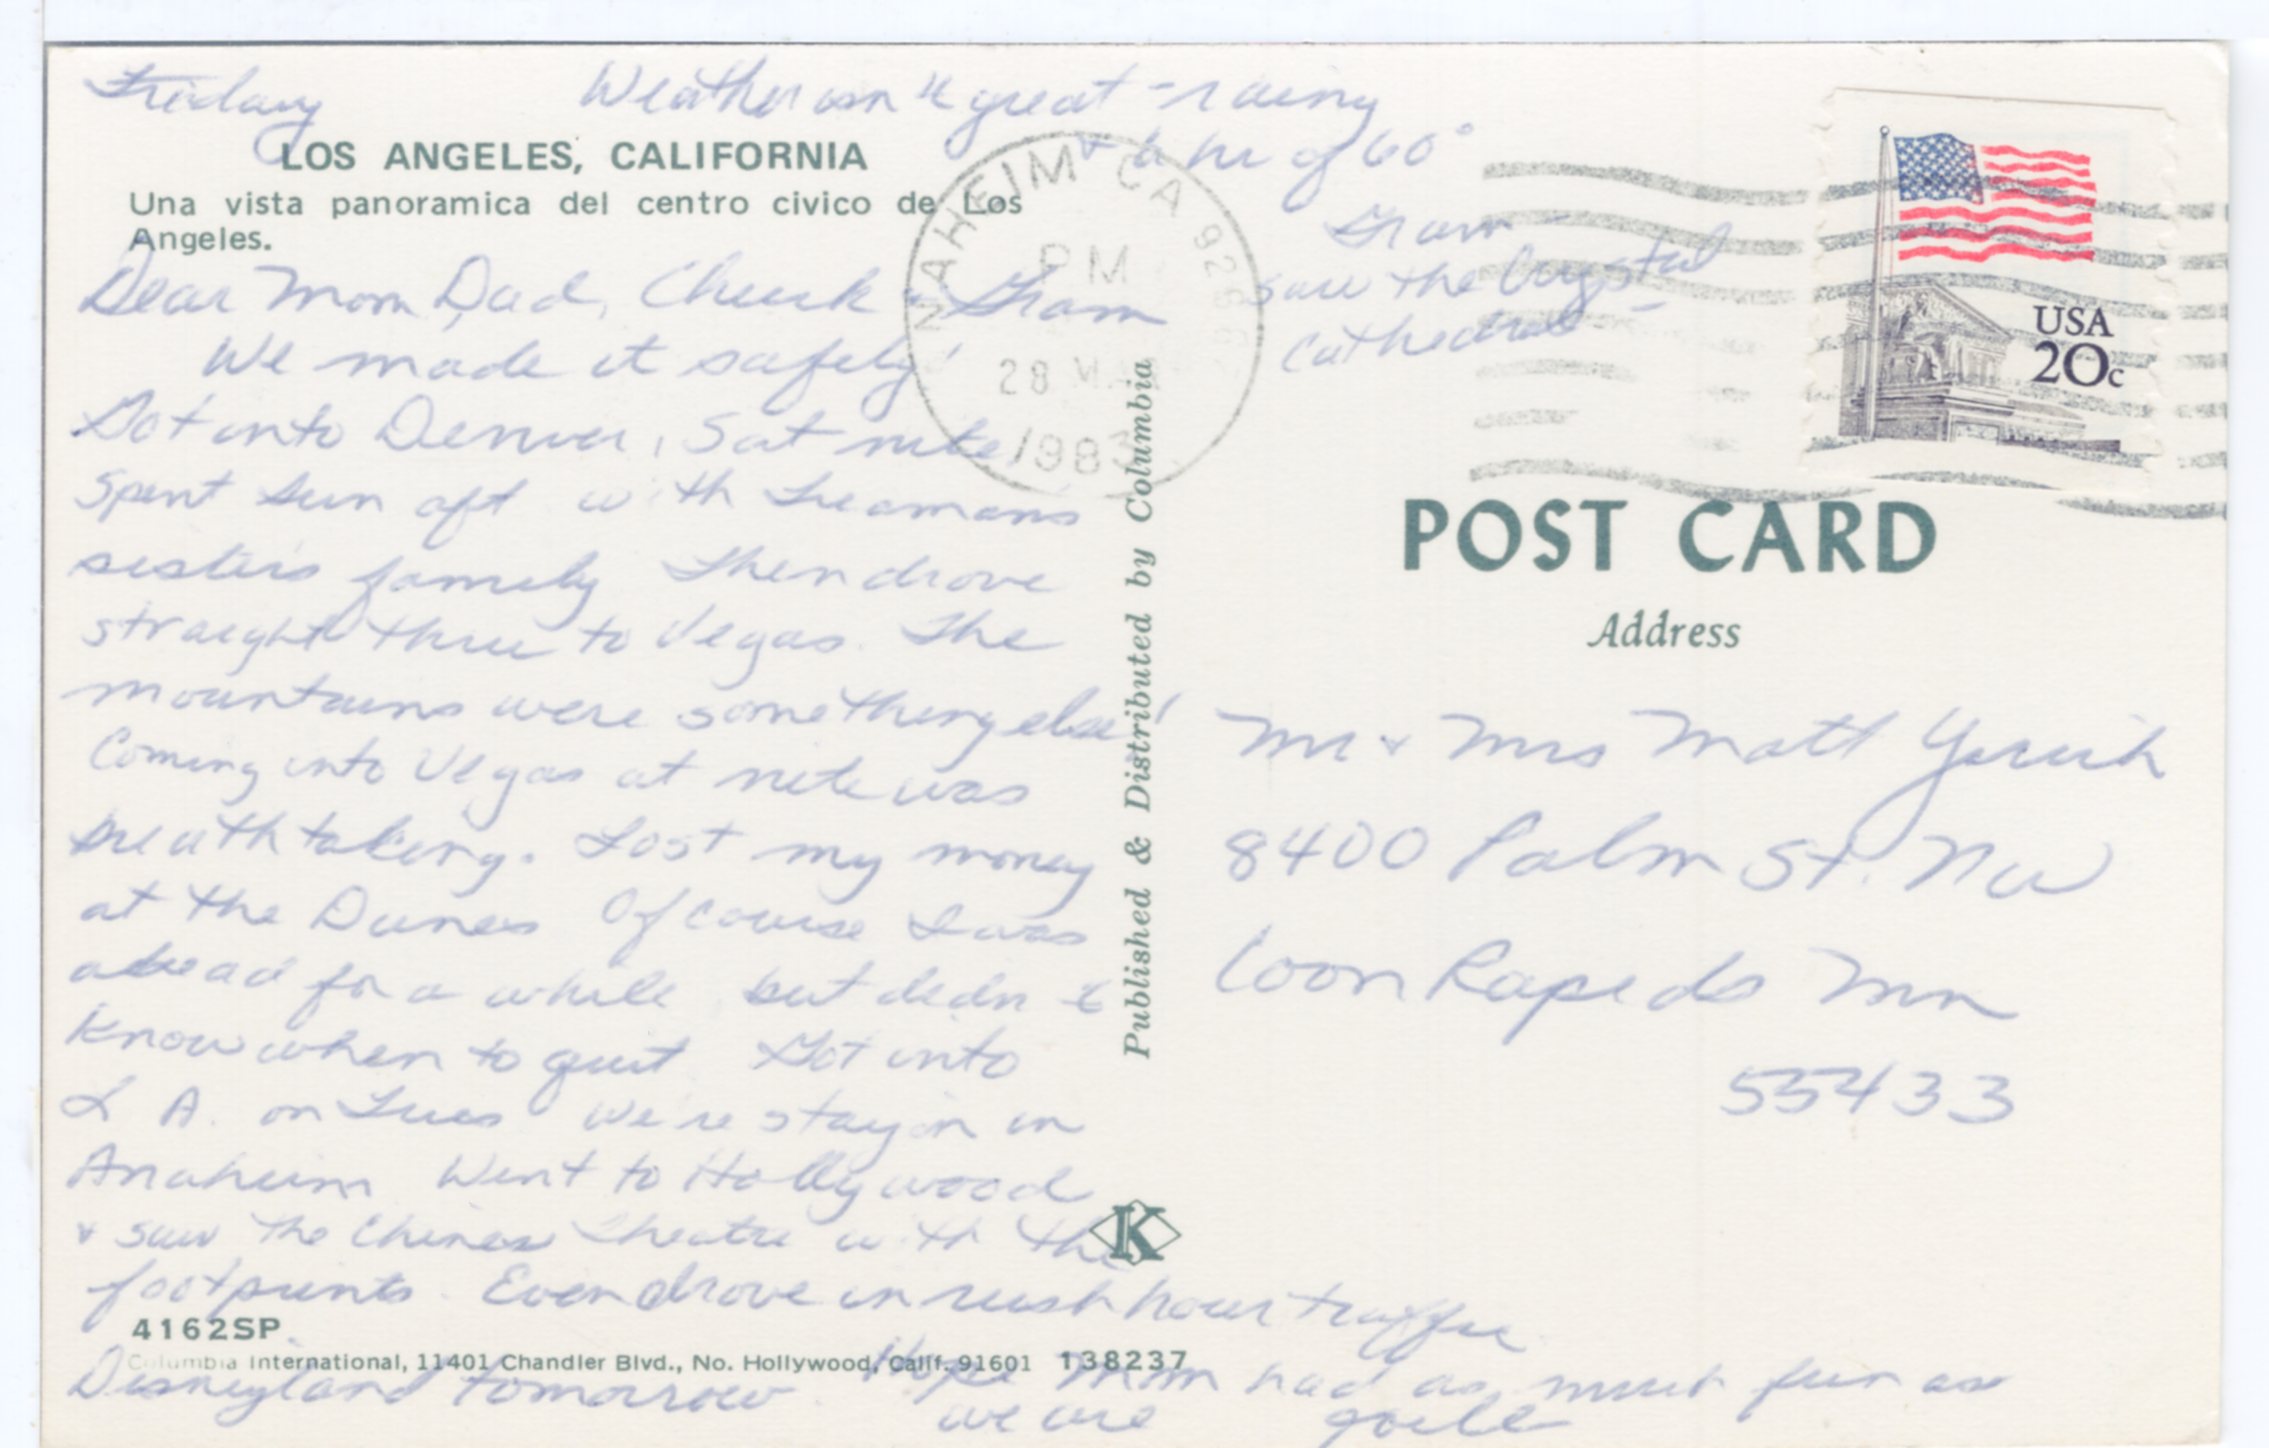 Friday Weather isn't great - rainy
& a hi of 60°
LOS ANGELES, CALIFORNIA
Una vista panoramica del centro civico de Los
Angeles.
Dear Mom, Dad, Chuck & Gram
We made it safely!
Got into Denver, Sat nite,
Spent Sun aft with
sisters family then drove
straight thru to Vegas. The
mountains were something else!
Coming into Vegas at nite was
breathtaking. Lost my money
at the Dunes Of course I was
ahead for a while but didn't
Know when to quit Got into
L A. on Tues We're stayin in
Anaheim Went to Hollywood
& saw the Chinese Theatre with the
footprints. Even drove in rush hour traffic
Disneyland tomorrow. Hope Mom had as much fun as
we are
Gram
saw the Crystal
Cathedral -
4162SP
Columbia International, 11401 Chandler Blvd., No. Hollywood, Calif. 91601 138237
Published & Distributed by Columbia
K
ANAHEIM CA
PM
28
1983
USA
20c
POST CARD
Address
Mr & Mrs Matt
8400 Palm St. NW
Coon Rapids Mn
55433